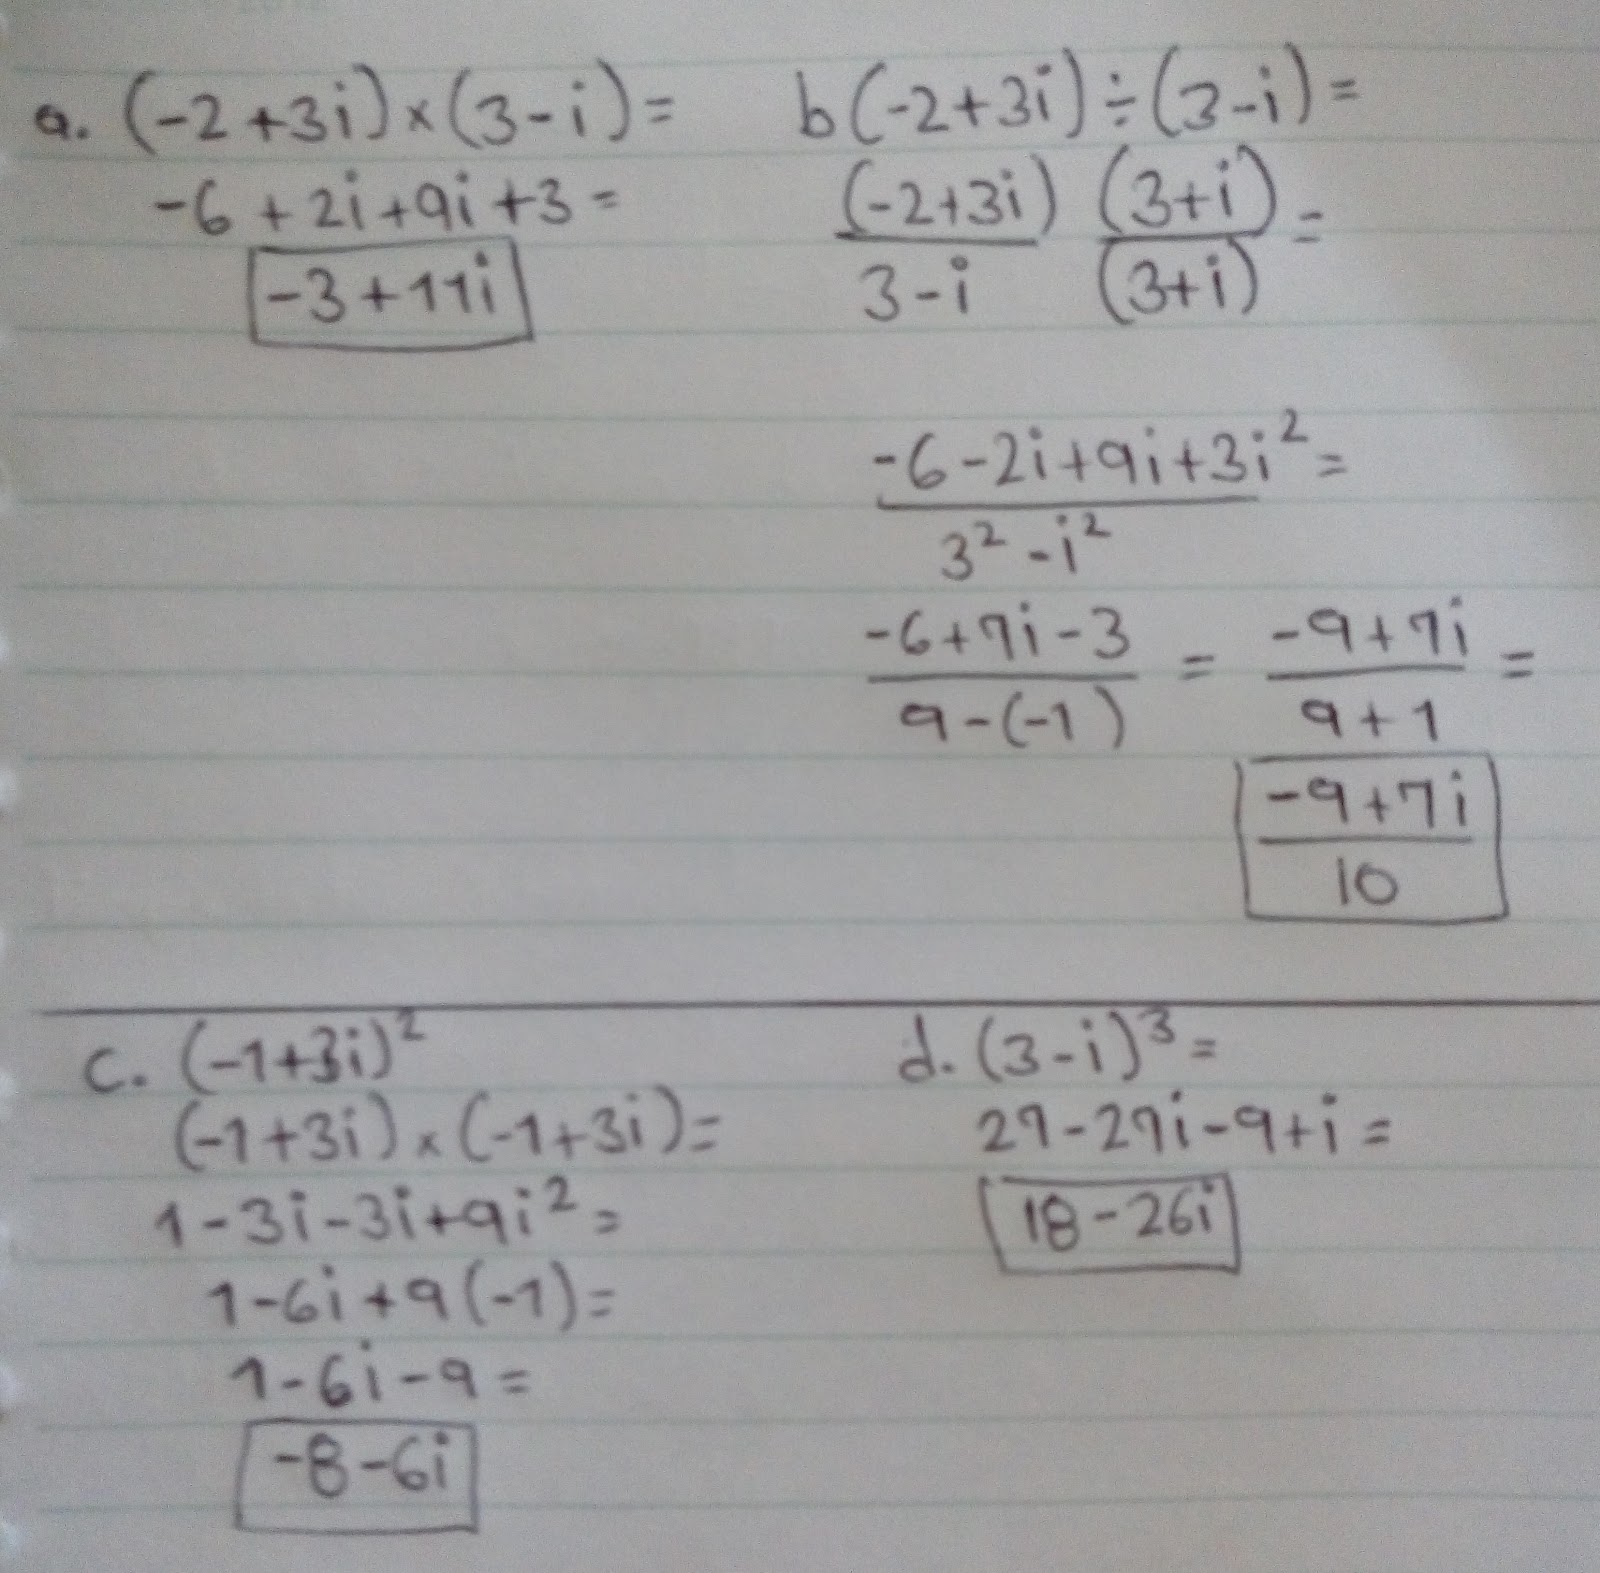 a. (-2+3i)×(3-i)=
-6+2i+9i+3=
-3+11i
b (-2+3i)÷(3-i)=
(-2+3i) (3+i) =
3-i (3+i)
-6-2i+9i+3i²=
3²-i²
-6+7i-3 = -9+7i =
9-(-1) 9+1
-9+7i
10
c. (-1+3i)²
(-1+3i)×(-1+3i)=
1-3i-3i+9i²=
1-6i+9(-1)=
1-6i-9=
-8-6i
d. (3-i)³=
27-27i-9+i=
18-26i